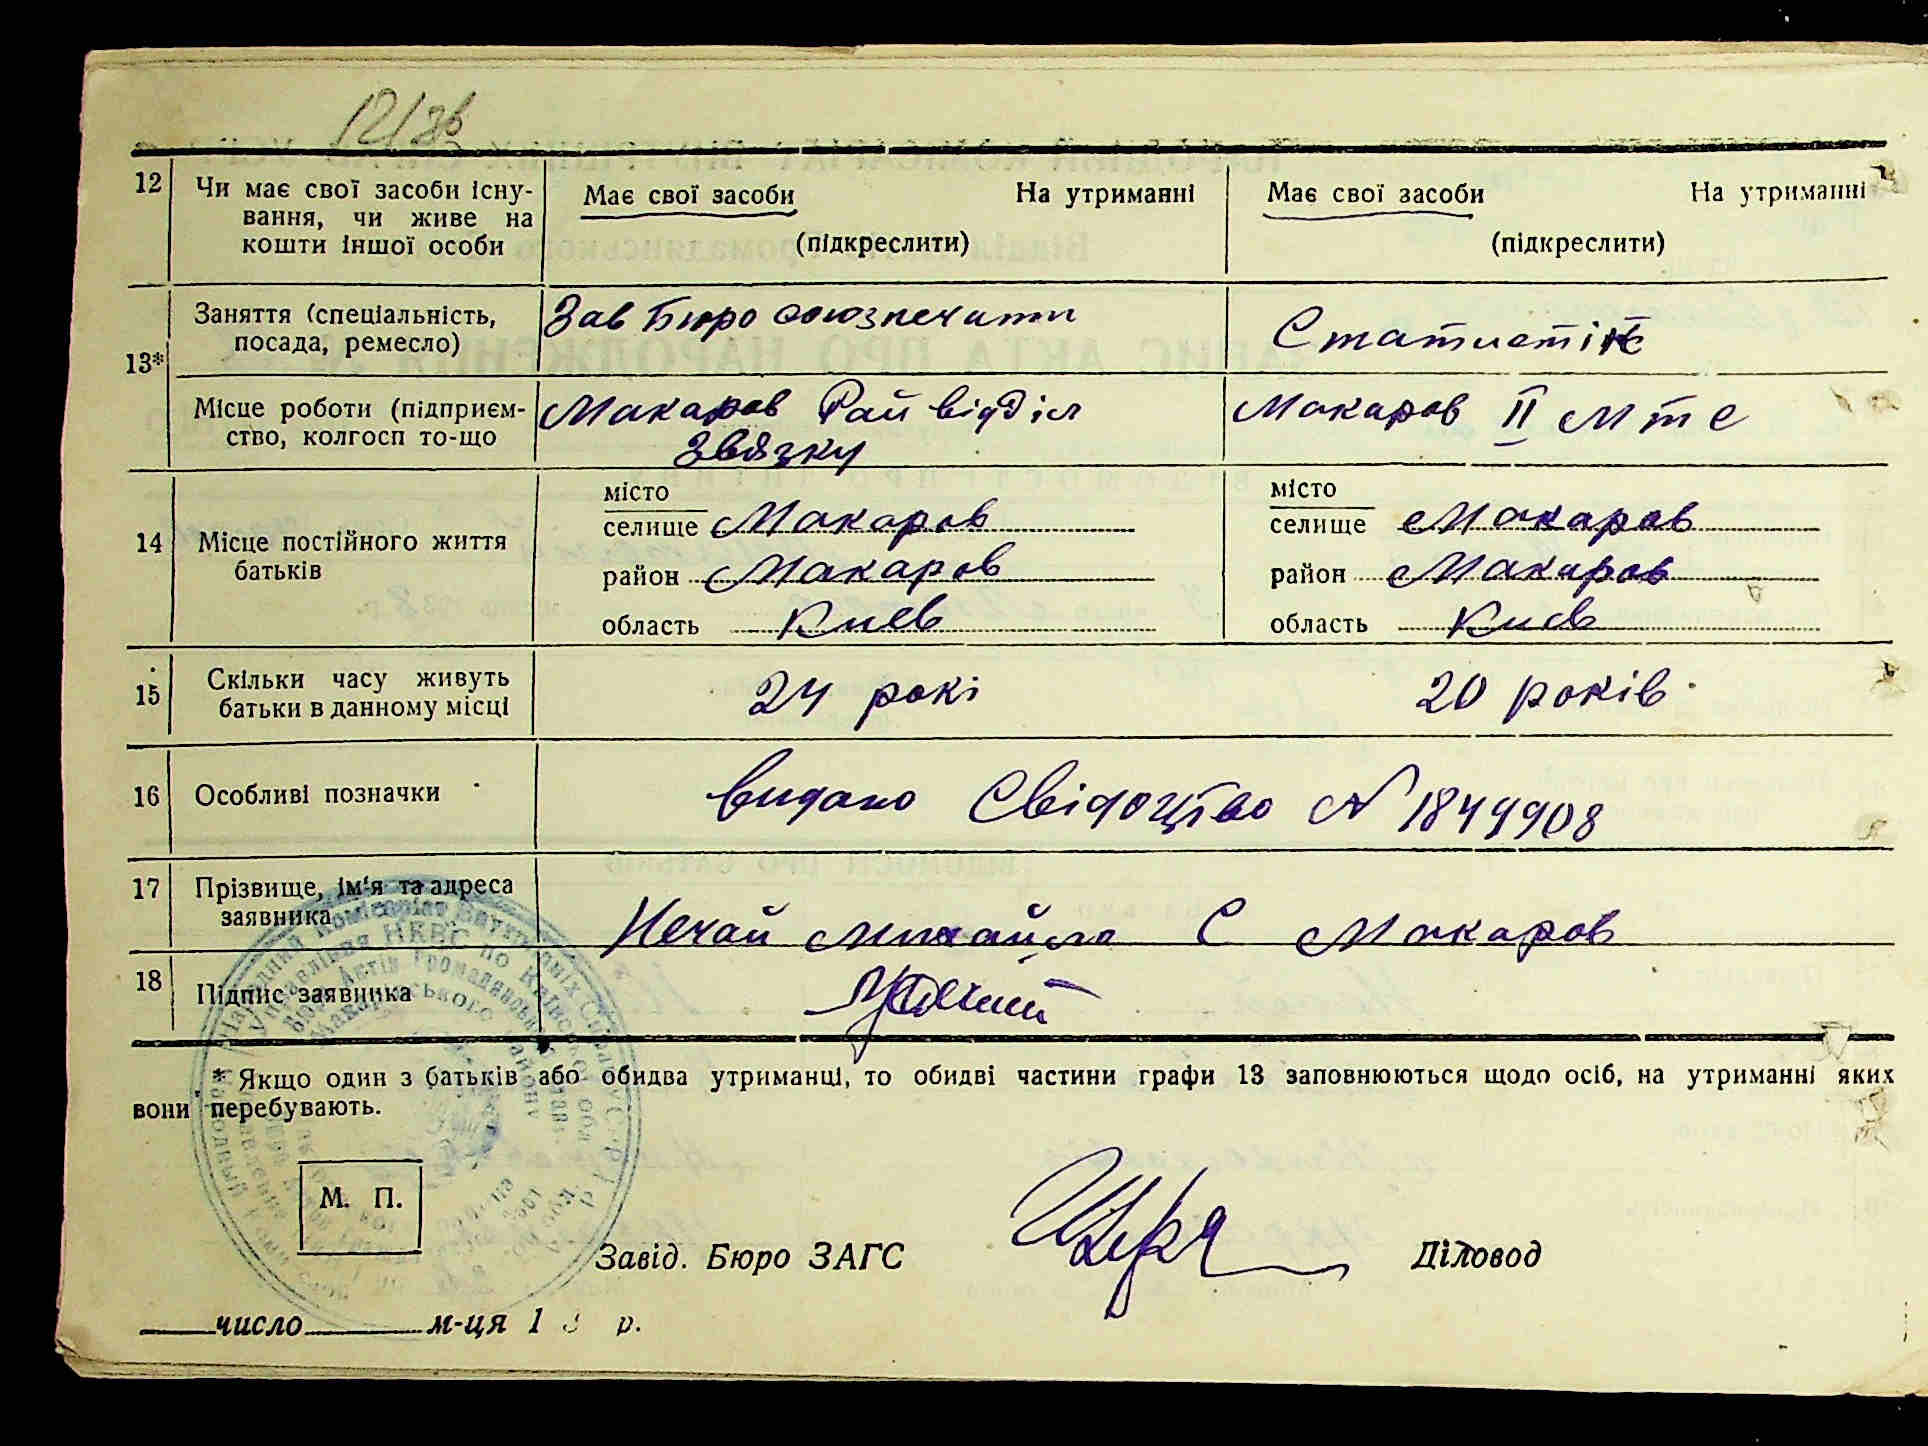 12/зв
12 Чи має свої засоби існу- Має свої засоби На утриманні Має свої засоби На утриманні
вання, чи живе на
кошти іншої особи (підкреслити) (підкреслити)
13* Заняття (спеціальність, Зав Бюро союзпечати Статистік
посада, ремесло)
Місце роботи (підприєм- Макаров Райвідділ Макаров II МТС
ство, колгосп то-що Звязку
14 Місце постійного життя місто місто
батьків селище Макаров селище Макаров
район Макаров район Макаров
область Киев область Киев
15 Скільки часу живуть 24 рокі 20 років
батьки в данному місці
16 Особливі позначки видано Свідоцтво N 1849908
17 Прізвище, ім'я та адреса
заявника Нечай Михайло С Макаров
18 Підпис заявника
* Якщо один з батьків або обидва утриманці, то обидві частини графи 13 заповнюються щодо осіб, на утриманні яких
вони перебувають.
М. П.
Завід. Бюро ЗАГС Діловод
число м-ця 1 3 р.